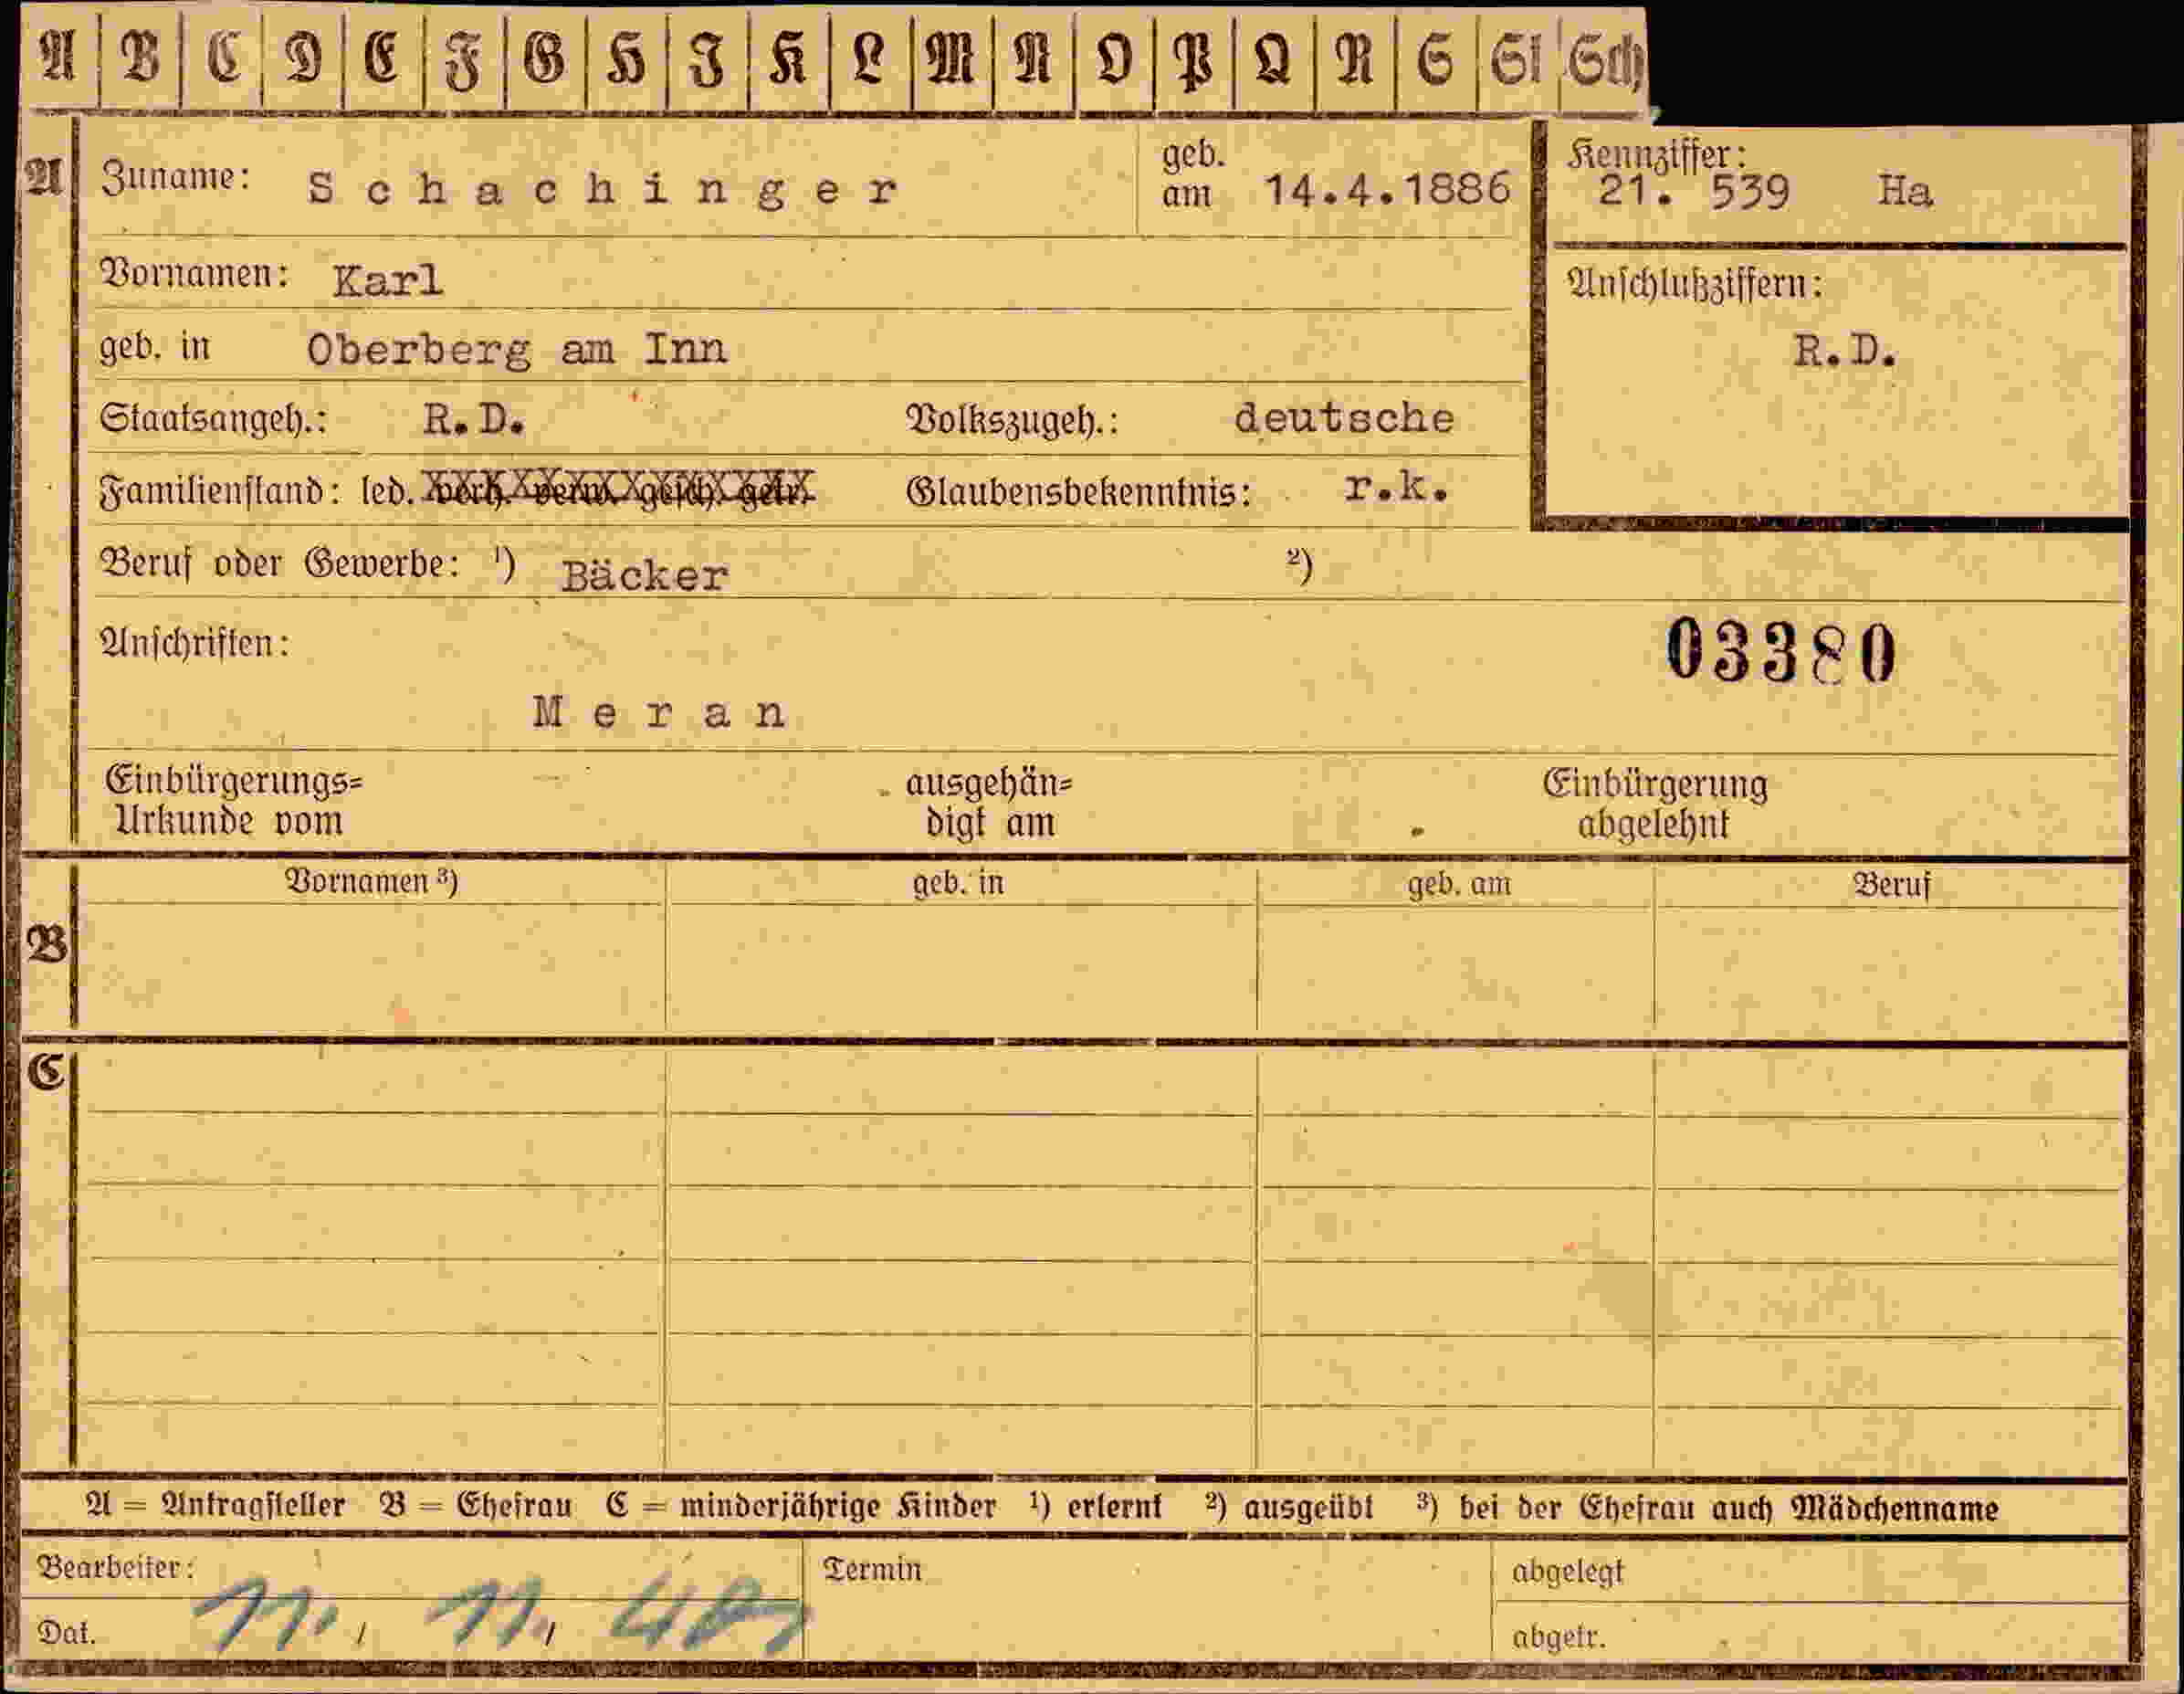 A B C D E F G H I K L M N O P Q R S St Sch
A Zuname: Schachinger geb. am 14.4.1886
Kennziffer: 21. 539 Ha
Vornamen: Karl
Anschlußziffern:
geb. in Oberberg am Inn
R.D.
Staatsangeh.: R.D. Volkszugeh.: deutsche
Familienstand: led. verh. verw. gesch. getr. Glaubensbekenntnis: r.k.
Beruf oder Gewerbe: ¹) Bäcker ²)
Anschriften:
03380
Meran
Einbürgerungs= ausgehän= Einbürgerung
Urkunde vom digt am abgelehnt
Vornamen ³) geb. in geb. am Beruf
B
C
A = Antragsteller B = Ehefrau C = minderjährige Kinder ¹) erlernt ²) ausgeübt ³) bei der Ehefrau auch Mädchenname
Bearbeiter: Termin abgelegt
Dat. 11. 11. 40 abgetr.